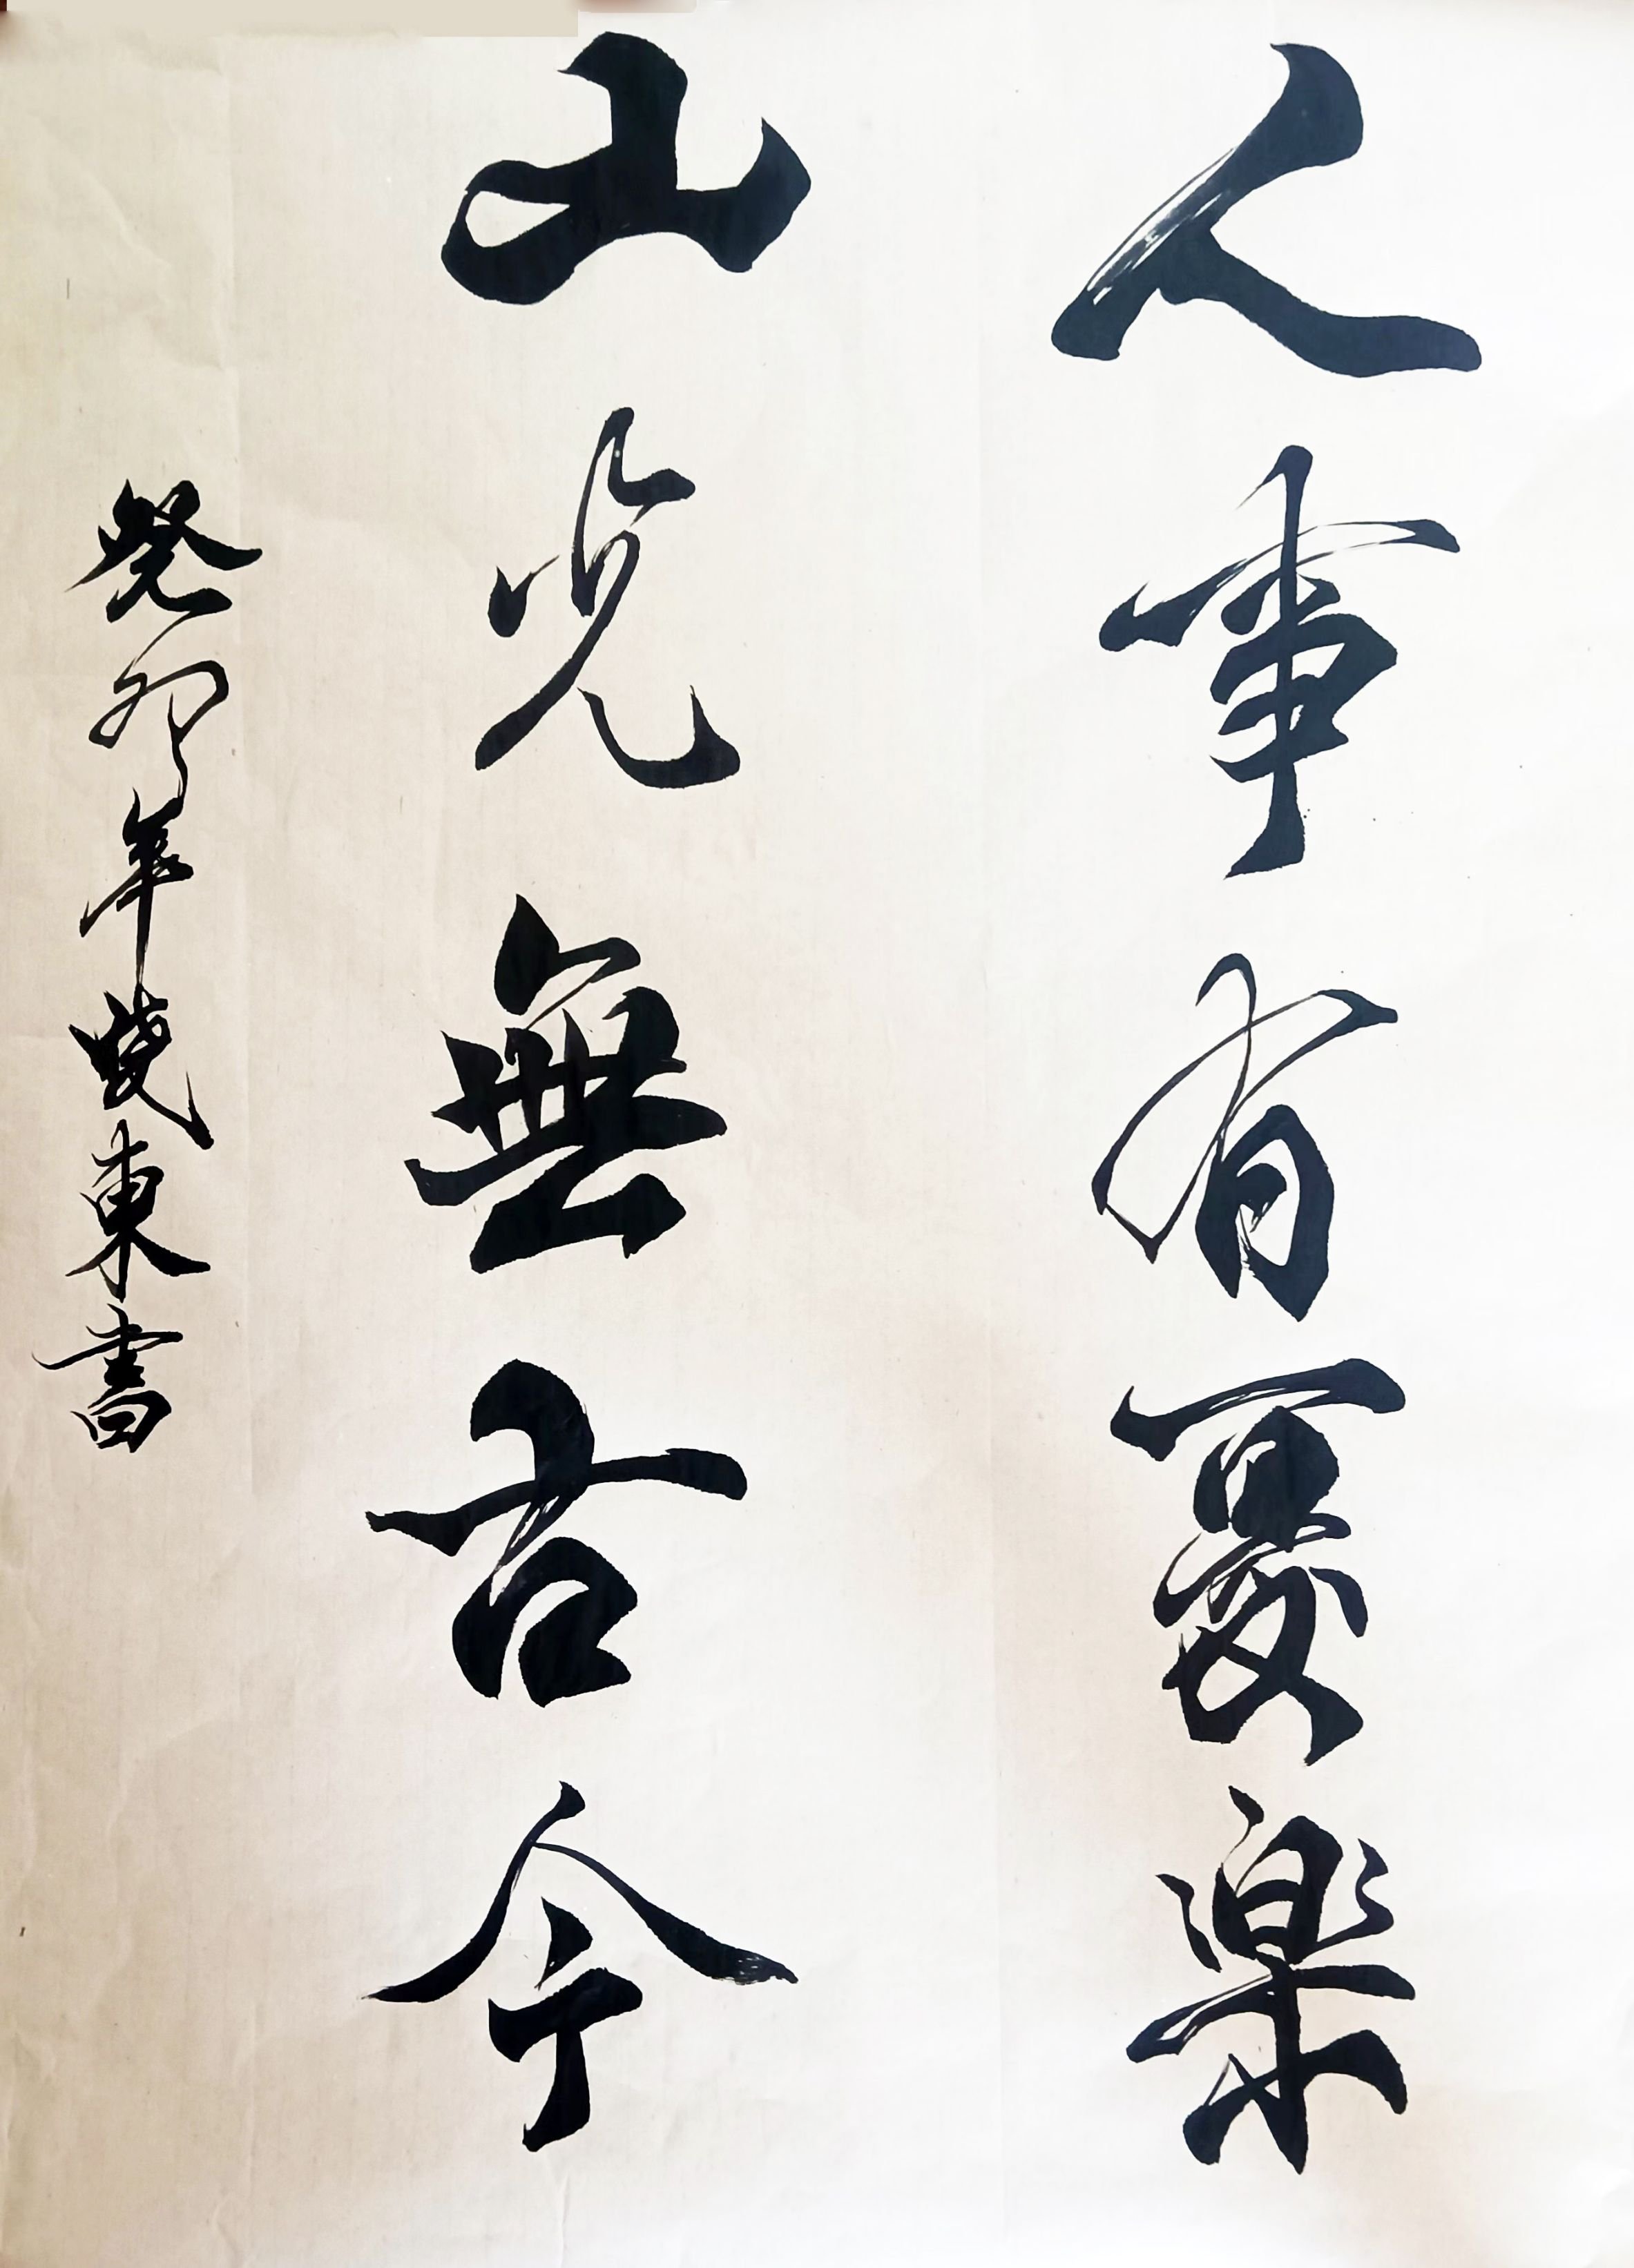 人事有憂樂
山光無古今
癸卯年曉東書